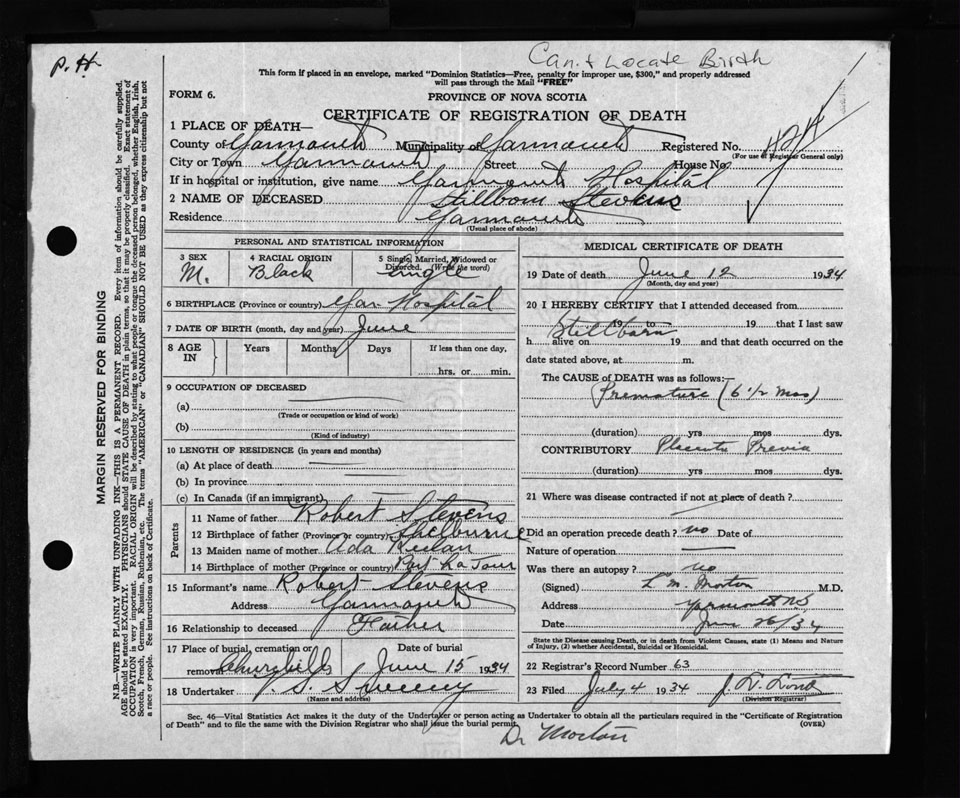 P.H
Can't Locate Birth
This form if placed in an envelope, marked "Dominion Statistics—Free, penalty for improper use, $300," and properly addressed
will pass through the Mail "FREE"
FORM 6.
PROVINCE OF NOVA SCOTIA
CERTIFICATE OF REGISTRATION OF DEATH
1 PLACE OF DEATH—
County of Yarmouth Municipality of Yarmouth Registered No.
(For use of Registrar General only)
City or Town Yarmouth Street House No.
If in hospital or institution, give name Yarmouth Hospital
2 NAME OF DECEASED Stillborn Stevens
Residence Yarmouth
(Usual place of abode)
PERSONAL AND STATISTICAL INFORMATION
3 SEX 4 RACIAL ORIGIN 5 Single, Married, Widowed or
Divorced. (Write the word)
M. Black Single
6 BIRTHPLACE (Province or country) Yar Hospital
7 DATE OF BIRTH (month, day and year) June
8 AGE IN Years Months Days If less than one day,
hrs. or min.
9 OCCUPATION OF DECEASED
(a)
(Trade or occupation or kind of work)
(b)
(Kind of industry)
10 LENGTH OF RESIDENCE (in years and months)
(a) At place of death
(b) In province
(c) In Canada (if an immigrant)
Parents
11 Name of father Robert Stevens
12 Birthplace of father (Province or country) Shelburne
13 Maiden name of mother Ada
14 Birthplace of mother (Province or country) Port La Tour
15 Informant's name Robert Stevens
Address Yarmouth
16 Relationship to deceased Father
17 Place of burial, cremation or Date of burial
removal June 15 1934
18 Undertaker V. S. Sweeny
(Name and address)
MEDICAL CERTIFICATE OF DEATH
19 Date of death June 12 1934
(Month, day and year)
20 I HEREBY CERTIFY that I attended deceased from
19 to 19 that I last saw
Stillborn
h alive on 19 and that death occurred on the
date stated above, at m.
The CAUSE of DEATH was as follows:—
Premature (6 1/2 mos)
(duration) yrs mos dys.
CONTRIBUTORY Placenta Previa
(duration) yrs mos dys.
21 Where was disease contracted if not at place of death?
Did an operation precede death? no Date of
Nature of operation
Was there an autopsy? no
(Signed) L. M. Morton M.D.
Address Yarmouth NS
Date June 26/34
State the Disease causing Death, or in death from Violent Causes, state (1) Means and Nature
of Injury, (2) whether Accidental, Suicidal or Homicidal.
22 Registrar's Record Number 63
23 Filed July 4 1934
(Division Registrar)
Sec. 46—Vital Statistics Act makes it the duty of the Undertaker or person acting as Undertaker to obtain all the particulars required in the "Certificate of Registration
of Death" and to file the same with the Division Registrar who shall issue the burial permit. (OVER)
Dr Morton
MARGIN RESERVED FOR BINDING
N.B.—WRITE PLAINLY WITH UNFADING INK—THIS IS A PERMANENT RECORD. Every item of information should be carefully supplied.
AGE should be stated EXACTLY. PHYSICIANS should STATE CAUSE OF DEATH in plain terms, so that it may be properly classified. Exact statement of
OCCUPATION is very important. RACIAL ORIGIN will be described by stating to what people or tongue the deceased person belonged, whether English, Irish,
Scotch, French, German, Russian, Ruthenian, etc. The terms "AMERICAN" or "CANADIAN" SHOULD NOT BE USED as they express citizenship but not
a race or people. See instructions on back of Certificate.